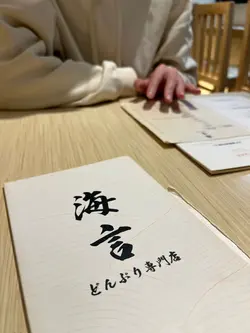 海
言
どんぶり専門店